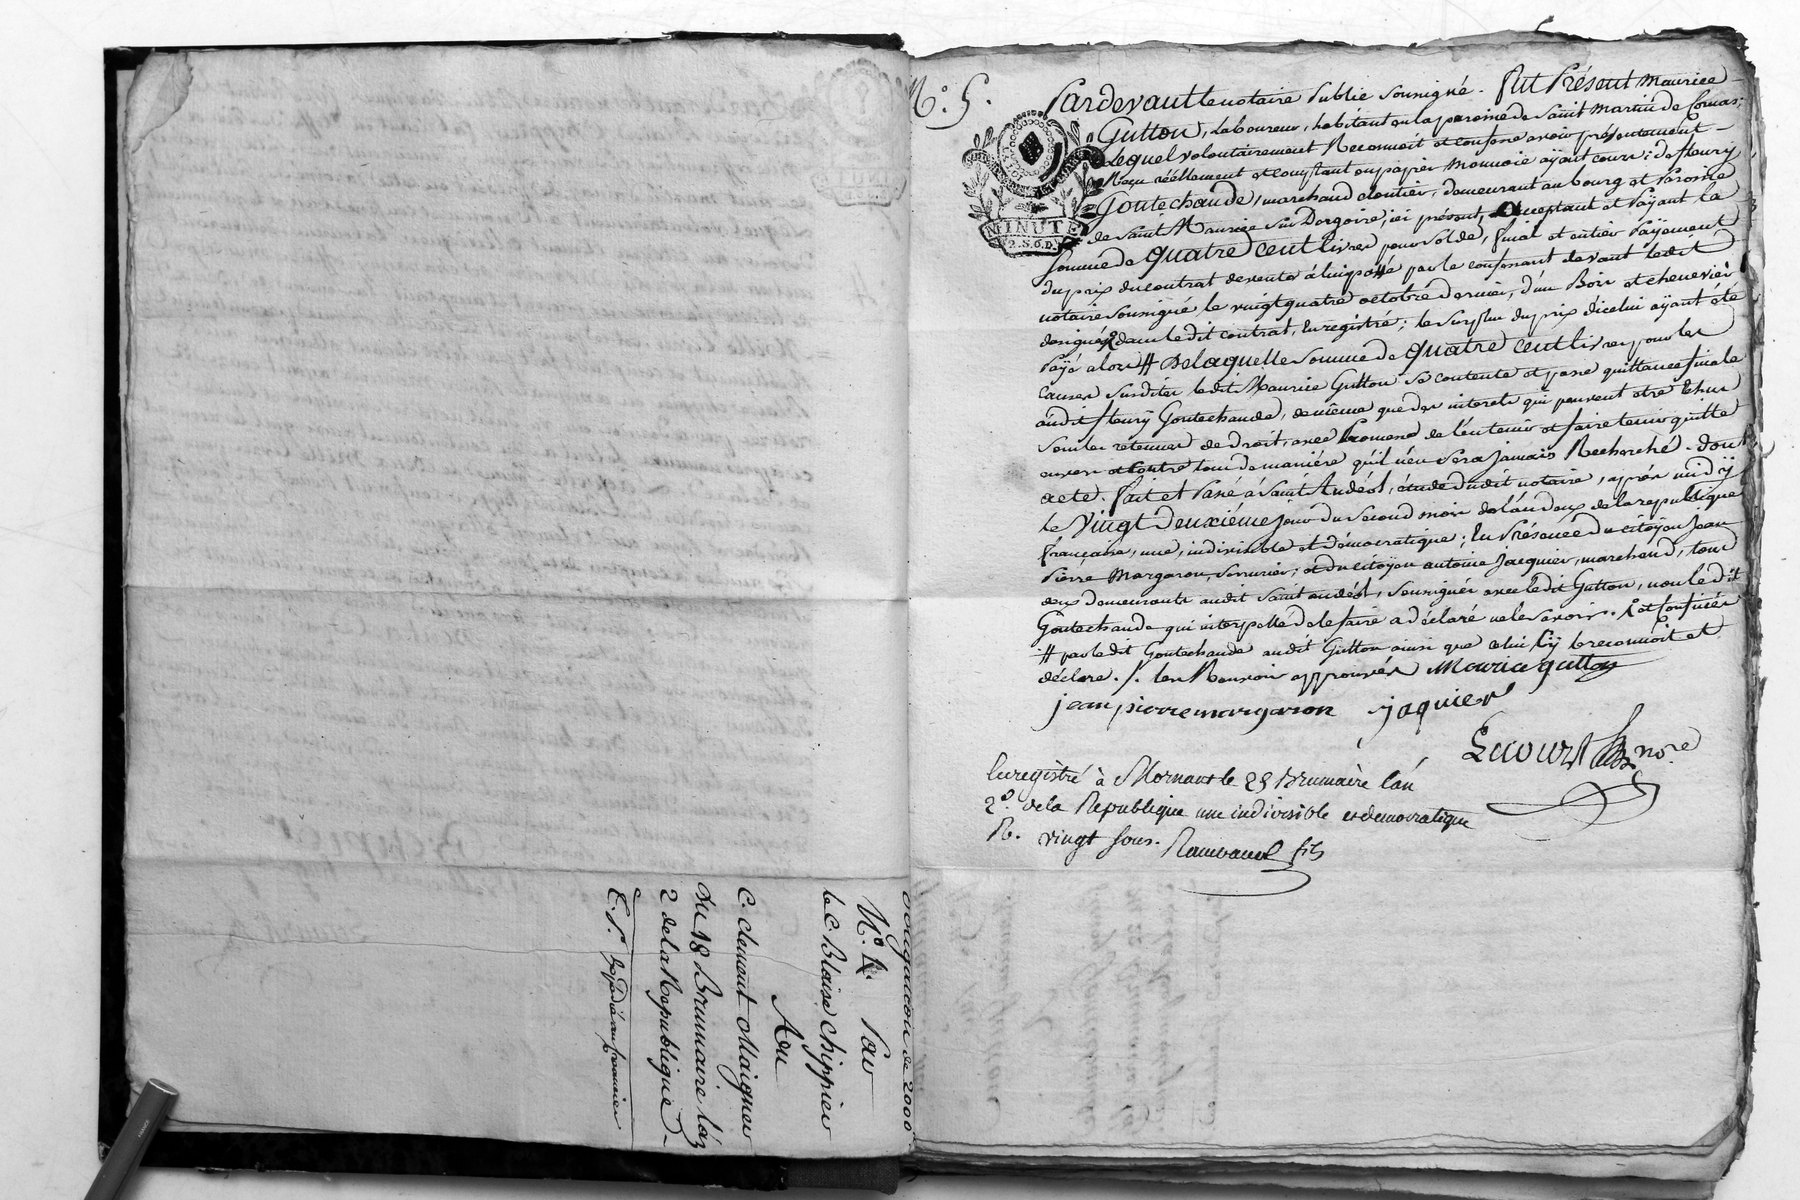 obligation de 2000
N.º 4. Par
le C. Blaise Chippier
Au
C. Clement Maignier
du 18 Brumaire l'an
2 de la Republique
E. P. Expédié au
N.º 5.
MINUTE
2. S. 6. D.
Pardevant le notaire Public soussigné. fut Présent Maurice
Gutton, laboureur, habitant en la paroisse de Saint Martin de Cornas;
Lequel volontairement Reconnoit et confesse avoir présentement
Reçu réellement et comptant en papier monnoie aÿant cours; de fleurÿ
Goutechaude, marchand cloutier, demeurant au bourg et Paroisse
de Saint Maurice Sur Dargoire, ici présent, acceptant et Païant la
somme de quatre cent livres pour solde, final et entier Païement
du prix du contrat de vente à lui passé par le confessant devant ledit
notaire soussigné, le vingt quatre octobre dernier, d'un Bois et chenevier
designés dans ledit contrat, Enregistré; le surplus du prix d'icelui aÿant été
Païé alors # De laquelle somme de quatre cent livres pour les
causes susdites ledit Maurice Gutton se contente et passe quittance finale
audit fleurÿ Goutechaude, de même que des interets qui peuvent être dhus
sous les retenues de droit, avec Promesse de l'en tenir et faire tenir quitte
envers et contre tous de manière qu'il n'en sera jamais Recherché. dont
acte. fait et Passé à Saint Andéol, étude dudit notaire, après midÿ
le vingt deuxiéme jour du second mois de l'an deux de la republique
française, une, indivisible et démocratique; En Présence du citoÿen Jean
Pierre Margaron, serrurier; et du citoÿen antoine Jacquier, marchand, tous
deux demeurants audit Saint andéol, soussignés avec ledit Gutton, non ledit
Goutechaude qui interpellé de le faire a déclaré ne le savoir. et
# par ledit Goutechaude audit Gutton ainsi que celui cÿ le reconnoit et
déclare. /. les Renvois approuvés Mourice gutton
jean pierre margaron jaquier
Lecourt nore
Enregistré à Mornant le 25 Brumaire l'an
2e. de la Republique une indivisible et democratique
R. vingt sous. fils